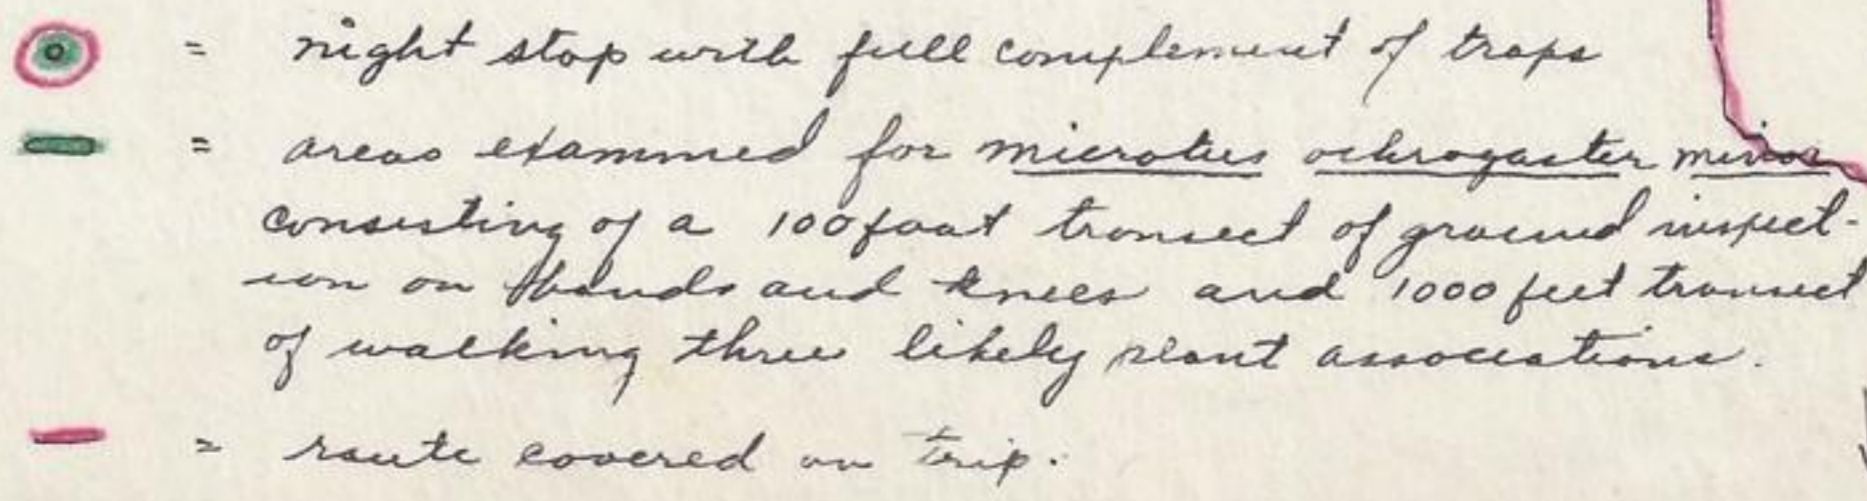 = night stop with full complement of traps
= areas examined for microtus ochrogaster minor
consisting of a 100 foot transect of ground inspect-
ion on hands and knees and 1000 feet transect
of walking three likely plant associations.
= route covered on trip.